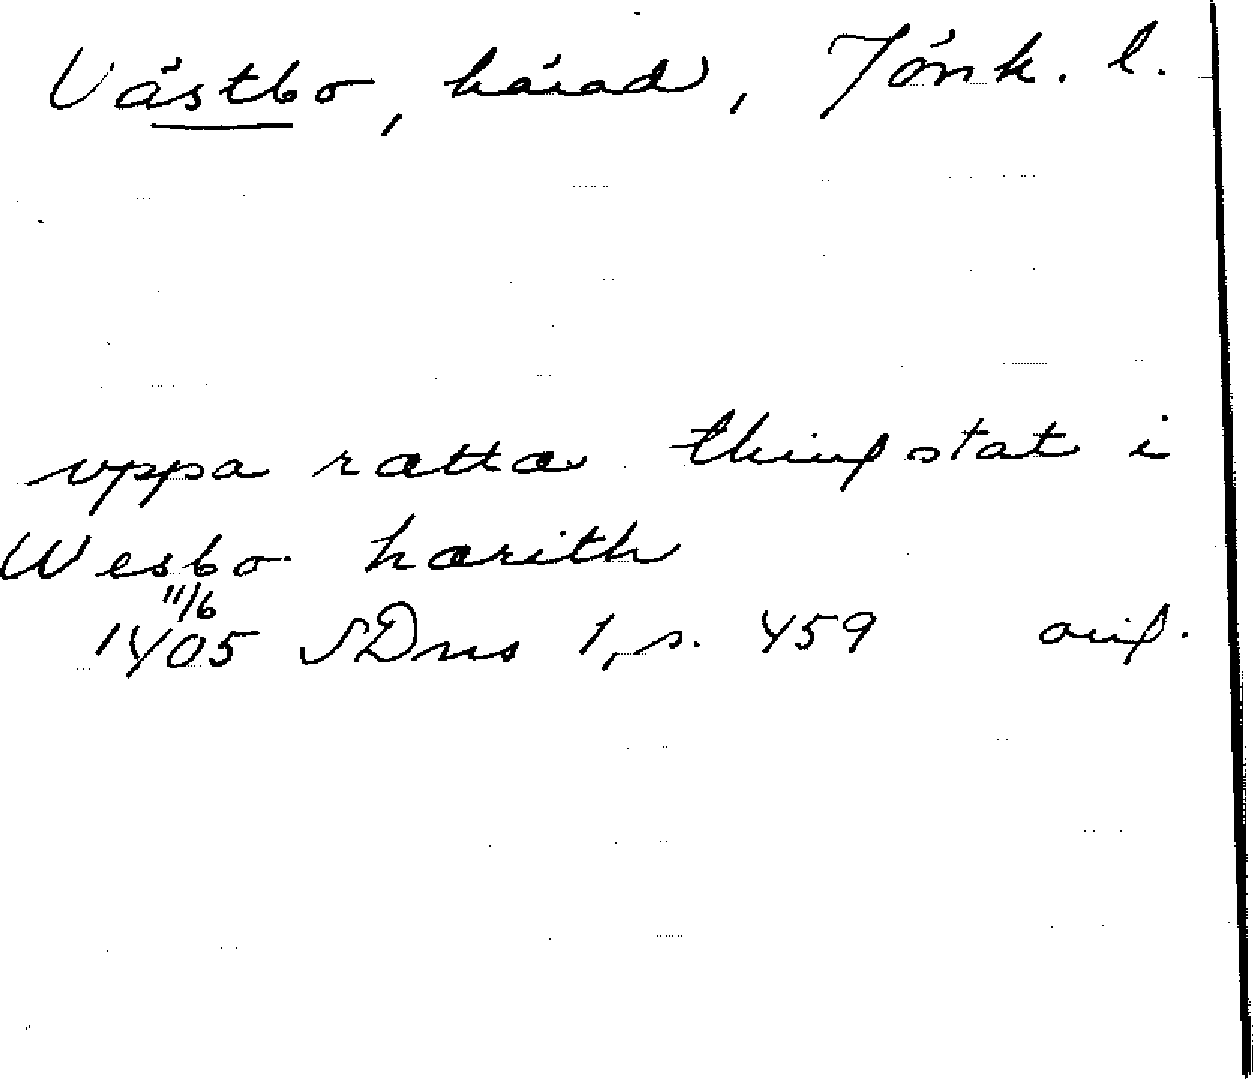 Västbo, härad, Jönk. l.
vppa rætta thingstat i
Wesbo hærith
11/6
1405 SDns 1, s. 459 orig.